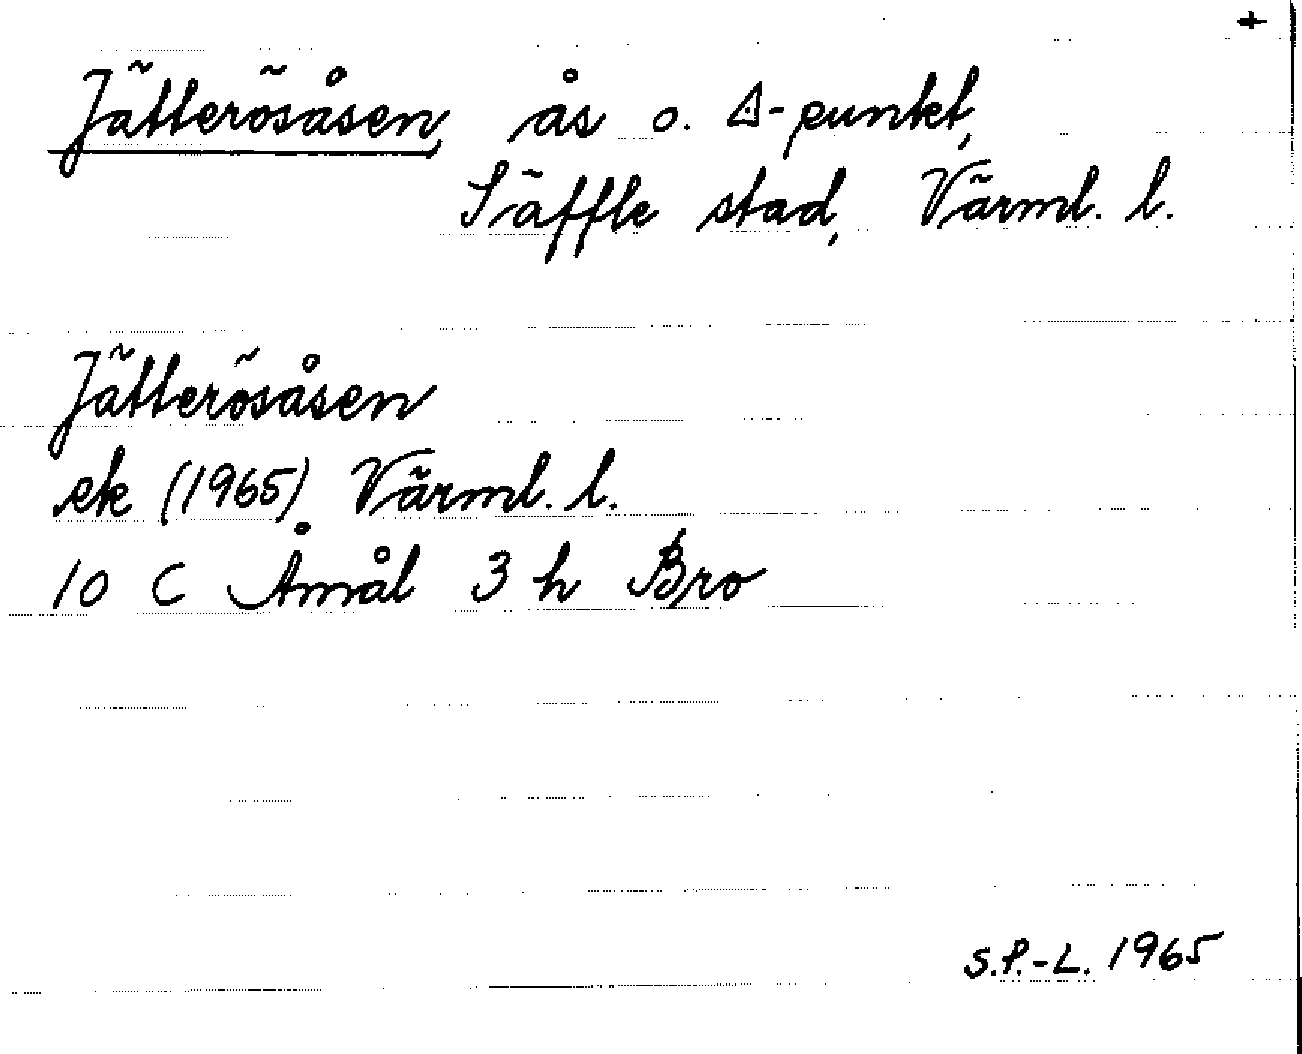 +
Jätterösåsen, ås o. ◬-punkt,
Säffle stad, Värml. l.
Jätterösåsen
ek (1965) Värml. l.
10 C Åmål 3 h Bro
S.P.-L. 1965